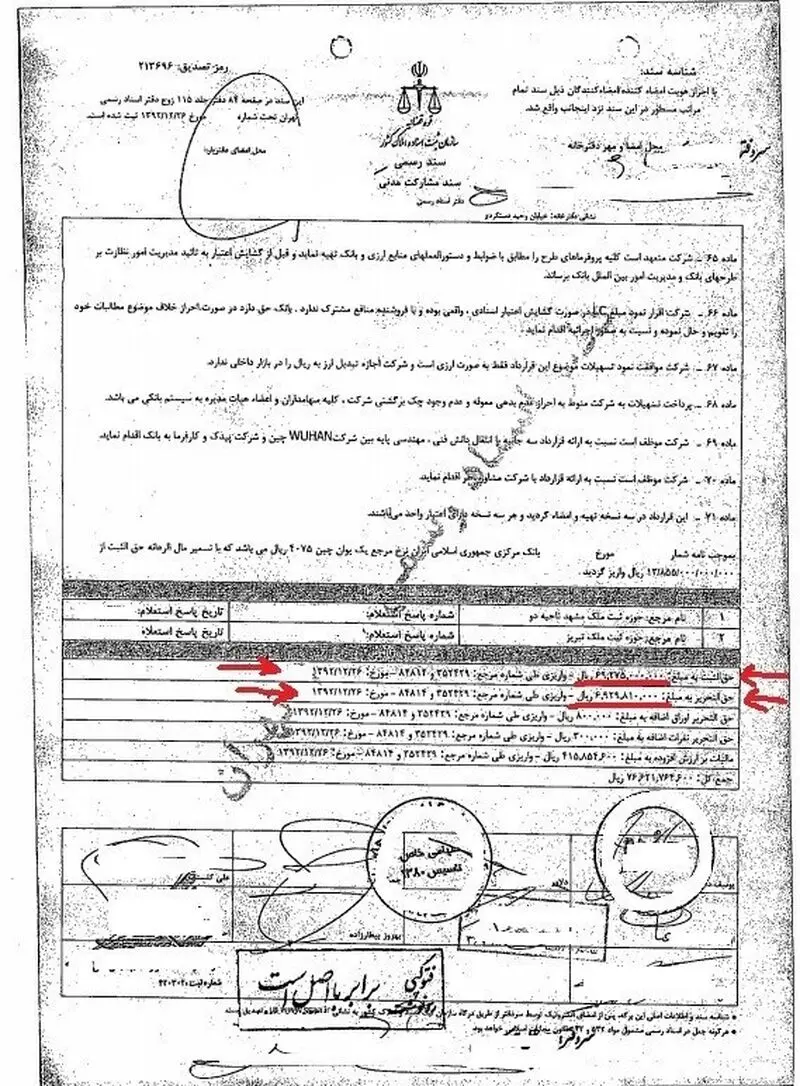 شناسه سند:
با احراز هویت امضاء کننده/امضاءکنندگان ذیل سند تمام
مراتب مسطور در این سند نزد اینجانب واقع شد.
محل امضا و مهر دفترخانه
سردفتر
قوه قضائیه
سازمان ثبت اسناد و املاک کشور
سند رسمی
سند مشارکت مدنی
دفتر اسناد رسمی
رمز تصدیق: ۲۱۳۶۹۶
این سند در صفحه ۸۴ دفتر جلد ۱۱۵ زوج دفتر اسناد رسمی
تهران تحت شماره مورخ ۱۳۹۲/۱۲/۲۶ ثبت شده است.
محل امضای دفتریار:
نشانی دفترخانه: خیابان وحید دستگردی
ماده ۶۵ - شرکت متعهد است کلیه پروفرماهای طرح را مطابق با ضوابط و دستورالعملهای منابع ارزی و بانک تهیه نماید و قبل از گشایش اعتبار به تائید مدیریت امور نظارت بر
طرحهای بانک و مدیریت امور بین الملل بانک برساند.
ماده ۶۶ - شرکت اقرار نمود مبلغ در صورت گشایش اعتبار اسنادی، واقعی بوده و با فروشنده منافع مشترک ندارد، بانک حق دارد در صورت احراز خلاف موضوع مطالبات خود
را تقویم و حال نموده و نسبت به صدور اجرائیه اقدام نماید.
ماده ۶۷ - شرکت موافقت نمود تسهیلات موضوع این قرارداد فقط به صورت ارزی است و شرکت اجازه تبدیل ارز به ریال را در بازار داخلی ندارد.
ماده ۶۸ - پرداخت تسهیلات به شرکت منوط به احراز عدم بدهی معوقه و عدم وجود چک برگشتی شرکت، کلیه سهامداران و اعضاء هیات مدیره به سیستم بانکی می باشد.
ماده ۶۹ - شرکت موظف است نسبت به ارائه قرارداد سه جانبه با انتقال دانش فنی، مهندسی پایه بین شرکت WUHAN چین و شرکت پیدک و کارفرما به بانک اقدام نماید.
ماده ۷۰ - شرکت موظف است نسبت به ارائه قرارداد با شرکت مشاور اقدام نماید.
ماده ۷۱ - این قرارداد در سه نسخه تهیه و امضاء گردید و هر سه نسخه دارای اعتبار واحد می‌باشند.
بموجب نامه شماره مورخ بانک مرکزی جمهوری اسلامی ایران نرخ مرجع یک یوان چین ۴۰۷۵ ریال می باشد که حق الثبت از
۱۳/۸۵۵/۰۰۰/۰۰۰/۰۰۰ ریال واریز گردید.
۱ نام مرجع: حوزه ثبت ملک مشهد ناحیه دو شماره پاسخ استعلام: تاریخ پاسخ استعلام:
۲ نام مرجع: حوزه ثبت ملک تبریز شماره پاسخ استعلام: تاریخ پاسخ استعلام:
حق الثبت به مبلغ: ۶۹,۲۷۵,۰۰۰,۰۰۰ ریال - واریزی طی شماره مرجع: ۳۵۲۴۲۹ و ۸۴۸۱۴ - مورخ: ۱۳۹۲/۱۲/۲۶
حق التحریر به مبلغ: ۶,۹۲۹,۸۱۰,۰۰۰ ریال - واریزی طی شماره مرجع: ۳۵۲۴۲۹ و ۸۴۸۱۴ - مورخ: ۱۳۹۲/۱۲/۲۶
حق التحریر اوراق اضافه به مبلغ: ۸۰۰,۰۰۰ ریال - واریزی طی شماره مرجع: ۳۵۲۴۲۹ و ۸۴۸۱۴ - مورخ: ۱۳۹۲/۱۲/۲۶
حق التحریر نفرات اضافه به مبلغ: ۳۰۰,۰۰۰ ریال - واریزی طی شماره مرجع: ۳۵۲۴۲۹ و ۸۴۸۱۴ - مورخ: ۱۳۹۲/۱۲/۲۶
مالیات بر ارزش افزوده به مبلغ: ۴۱۵,۸۵۴,۶۰۰ ریال - واریزی طی شماره مرجع: ۳۵۲۴۲۹ و ۸۴۸۱۴ - مورخ: ۱۳۹۲/۱۲/۲۶
جمع کل: ۷۶,۶۲۱,۷۶۴,۶۰۰ ریال
تهران
سهامی خاص
تاسیس ۱۳۸۰
بهروز بیطارزاده
علی
فتوکپی برابر با اصل است
شماره ثبت ۴۲۰۳۰۲۰